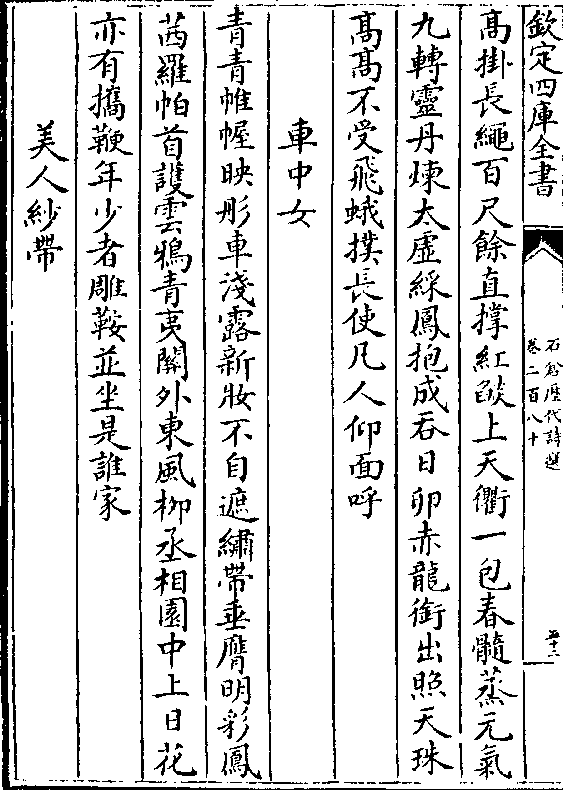 欽定四庫全書
石倉歴代詩選
卷二百八十
五十二
髙掛長繩百尺餘直撑紅燄上天衢一包春髓蒸元氣
九轉靈丹煉太虚綵鳳抱成吞日卵赤龍銜出照天珠
髙髙不受飛蛾撲長使凡人仰面呼
車中女
青青帷幄映彤車淺露新妝不自遮繡帶垂膺明彩鳳
茜羅帕首護雲鴉青夷闗外東風栁丞相園中上日花
亦有擕鞭年少者雕鞍並坐是誰家
美人紗帶